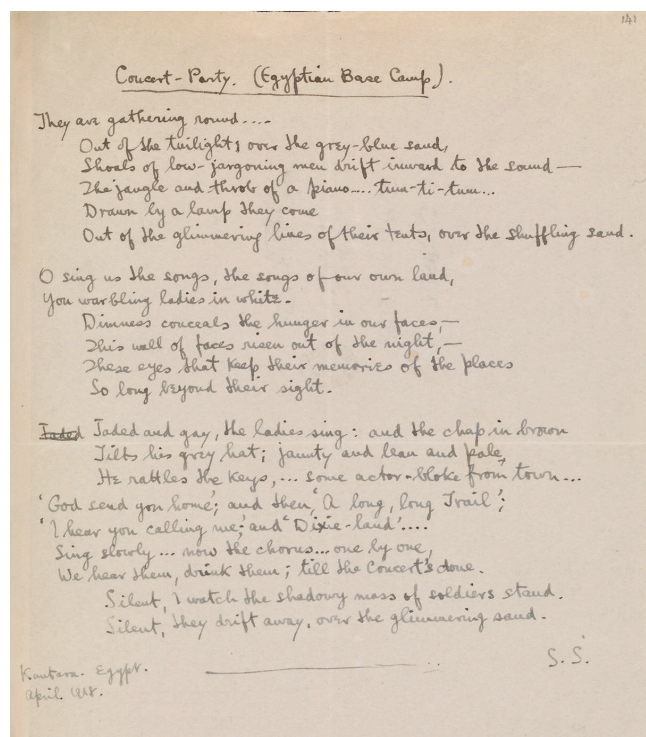 141
Concert-Party. (Egyptian Base Camp).
They are gathering round....
Out of the twilight; over the grey-blue sand,
Shoals of low-jargoning men drift inward to the sound—
The jangle and throb of a piano.... tum-ti-tum...
Drawn by a lamp they come
Out of the glimmering lines of their tents, over the shuffling sand.
O sing us the songs, the songs of our own land,
You warbling ladies in white.
Dimness conceals the hunger in our faces,—
This wall of faces risen out of the night,—
These eyes that keep their memories of the places
So long beyond their sight.
Jaded Jaded and gay, the ladies sing: and the chap in brown
Tilts his grey hat; jaunty and lean and pale,
He rattles the keys,... some actor-bloke from town...
'God send you home'; and then, 'A long, long Trail';
'I hear you calling me'; and 'Dixie-land'....
Sing slowly... now the chorus... one by one,
We hear them, drink them; till the Concert's done.
Silent, I watch the shadowy mass of soldiers stand.
Silent, they drift away, over the glimmering sand.
S.S.
Kantara. Egypt.
April. 1918.